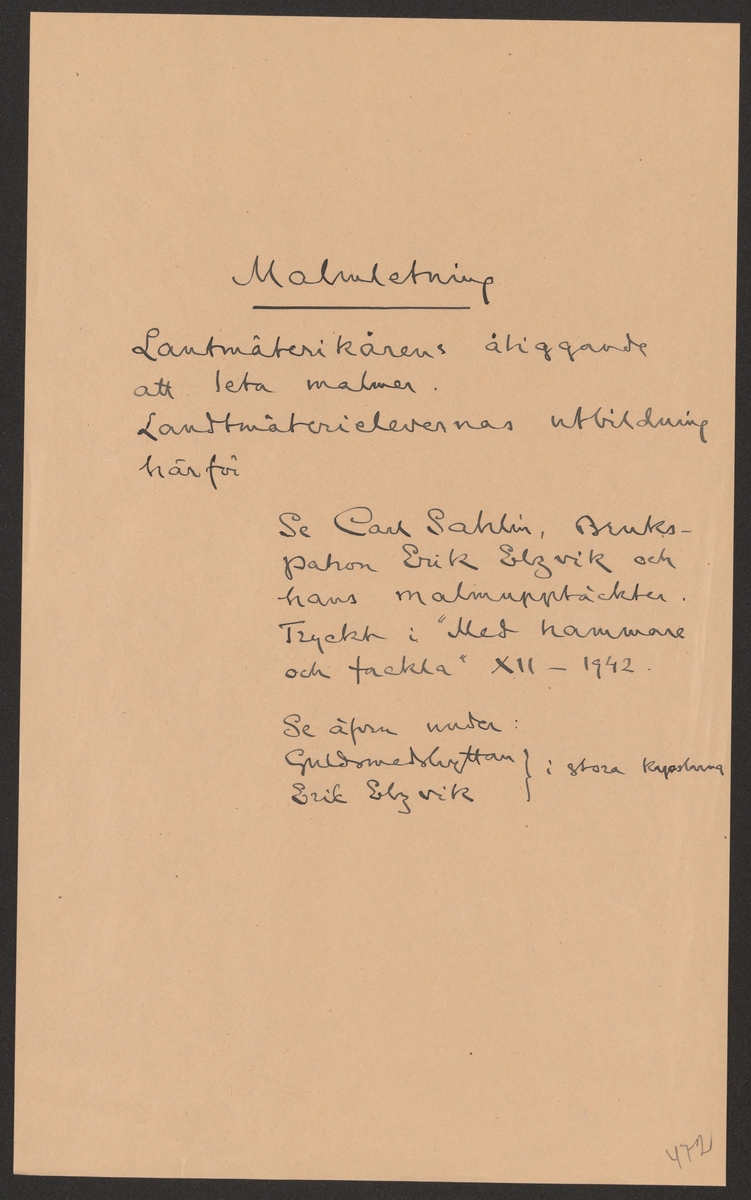 Malmletning
Lantmäterikårens åliggande
att leta malmer.
Landtmäterielevernas utbildning
härför
Se Carl Sahlin, Bruks-
patron Erik Elzvik och
hans malmupptäckter.
Tryckt i "Med hammare
och fackla" XII - 1942.
Se äfven under:
Guldsmedshyttan } i stora kapslarna
Erik Elzvik
472